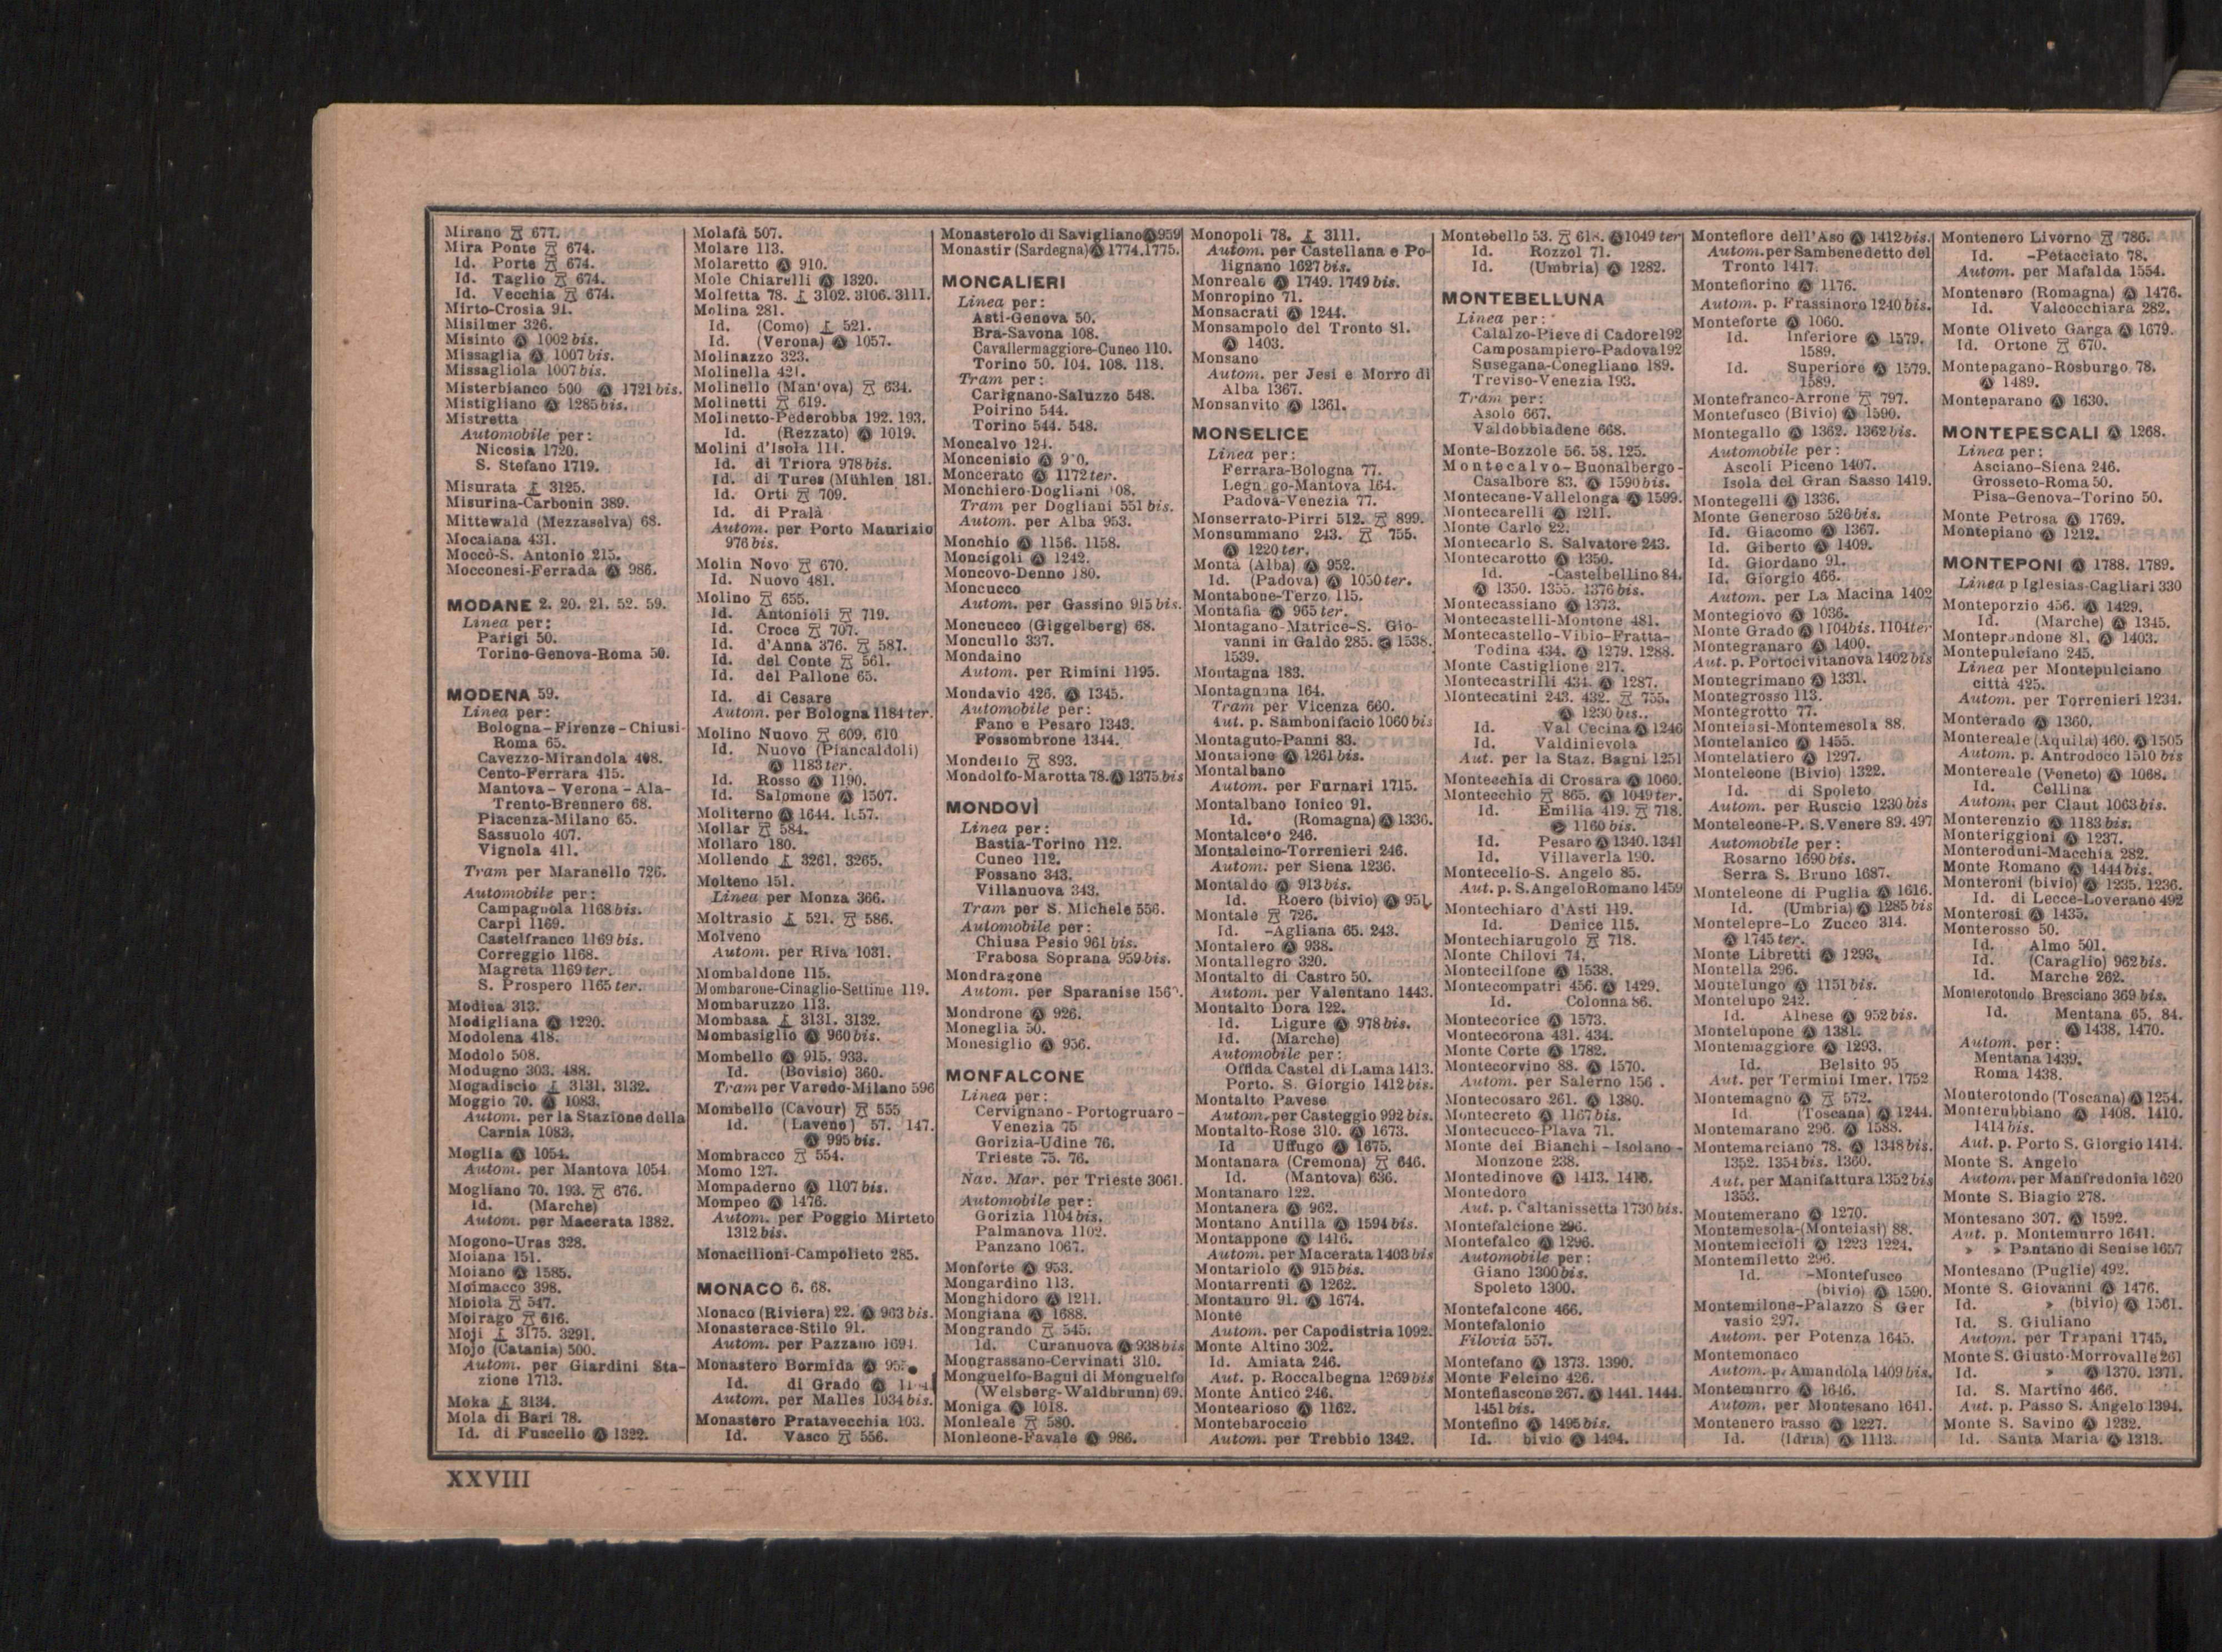 Mirano 677.
Mira Ponte 674.
Id. Porte 674.
Id. Taglio 674.
Id. Vecchia 674.
Mirto-Crosia 91.
Misilmer 326.
Misinto Ⓐ 1002 bis.
Missaglia Ⓐ 1007 bis.
Missagliola 1007 bis.
Misterbianco 500 Ⓐ 1721 bis.
Mistigliano Ⓐ 1285 bis.
Mistretta
Automobile per:
Nicosia 1720.
S. Stefano 1719.
Misurata 3125.
Misurina-Carbonin 389.
Mittewald (Mezzaselva) 68.
Mocaiana 431.
Moccò-S. Antonio 215.
Mocconesi-Ferrada Ⓐ 986.
MODANE 2. 20. 21. 52. 59.
Linea per:
Parigi 50.
Torino-Genova-Roma 50.
MODENA 59.
Linea per:
Bologna-Firenze-Chiusi-
Roma 65.
Cavezzo-Mirandola 408.
Cento-Ferrara 415.
Mantova-Verona-Ala-
Trento-Brennero 68.
Piacenza-Milano 65.
Sassuolo 407.
Vignola 411.
Tram per Maranello 726.
Automobile per:
Campagnola 1168 bis.
Carpi 1169.
Castelfranco 1169 bis.
Correggio 1168.
Magreta 1169 ter.
S. Prospero 1165 ter.
Modica 313.
Modigliana Ⓐ 1220.
Modolena 418.
Modolo 508.
Modugno 303. 488.
Mogadiscio 3131. 3132.
Moggio 70. Ⓐ 1083.
Autom. per la Stazione della
Carnia 1083.
Moglia Ⓐ 1054.
Autom. per Mantova 1054.
Mogliano 70. 193. 676.
Id. (Marche)
Autom. per Macerata 1382.
Mogono-Uras 328.
Moiana 151.
Moiano Ⓐ 1585.
Moimacco 398.
Moiola 547.
Moirago 616.
Moji 3175. 3291.
Mojo (Catania) 500.
Autom. per Giardini Sta-
zione 1713.
Moka 3134.
Mola di Bari 78.
Id. di Fuscello Ⓐ 1322.
Molafà 507.
Molare 113.
Molaretto Ⓐ 910.
Mole Chiarelli Ⓐ 1320.
Molfetta 78. 3102. 3106. 3111.
Molina 281.
Id. (Como) 521.
Id. (Verona) Ⓐ 1057.
Molinazzo 323.
Molinella 421.
Molinello (Mantova) 634.
Molinetti 619.
Molinetto-Pederobba 192. 193.
Id. (Rezzato) Ⓐ 1019.
Molini d'Isola 111.
Id. di Triora 978 bis.
Id. di Tures (Mühlen 181.
Id. Orti 709.
Id. di Pralà
Autom. per Porto Maurizio
976 bis.
Molin Novo 670.
Id. Nuovo 481.
Molino 655.
Id. Antonioli 719.
Id. Croce 707.
Id. d'Anna 376. 587.
Id. del Conte 561.
Id. del Pallone 65.
Id. di Cesare
Autom. per Bologna 1184 ter.
Molino Nuovo 609. 610
Id. Nuovo (Piancaldoli)
Ⓐ 1183 ter.
Id. Rosso Ⓐ 1190.
Id. Salomone Ⓐ 1507.
Moliterno Ⓐ 1644. 1657.
Mollar 584.
Mollaro 180.
Mollendo 3261. 3265.
Molteno 151.
Linea per Monza 366.
Moltrasio 521. 586.
Molveno
Autom. per Riva 1031.
Mombaldone 115.
Mombarone-Cinaglio-Settime 119.
Mombaruzzo 113.
Mombasa 3131. 3132.
Mombasiglio Ⓐ 960 bis.
Mombello Ⓐ 915. 933.
Id. (Bovisio) 360.
Tram per Varedo-Milano 596
Mombello (Cavour) 555
Id. (Laveno) 57. 147.
Ⓐ 995 bis.
Mombracco 554.
Momo 127.
Mompaderno Ⓐ 1107 bis.
Mompeo Ⓐ 1476.
Autom. per Poggio Mirteto
1312 bis.
Monacilioni-Campolieto 285.
MONACO 6. 68.
Monaco (Riviera) 22. Ⓐ 963 bis.
Monasterace-Stilo 91.
Autom. per Pazzano 1691.
Monastero Bormida Ⓐ
Id. di Grado Ⓐ
Autom. per Malles 1034 bis.
Monastero Pratavecchia 103.
Id. Vasco 556.
Monasterolo di Savigliano Ⓐ 959
Monastir (Sardegna) Ⓐ 1774. 1775.
MONCALIERI
Linea per:
Asti-Genova 50.
Bra-Savona 108.
Cavallermaggiore-Cuneo 110.
Torino 50. 104. 108. 118.
Tram per:
Carignano-Saluzzo 548.
Poirino 544.
Torino 544. 548.
Moncalvo 124.
Moncenisio Ⓐ
Moncerato Ⓐ 1172 ter.
Monchiero-Dogliani 108.
Tram per Dogliani 551 bis.
Autom. per Alba 953.
Monchio Ⓐ 1156. 1158.
Moncigoli Ⓐ 1242.
Moncovo-Denno 180.
Moncucco
Autom. per Gassino 915 bis.
Moncucco (Giggelberg) 68.
Moncullo 337.
Mondaino
Autom. per Rimini 1195.
Mondavio 426. Ⓐ 1345.
Automobile per:
Fano e Pesaro 1343.
Fossombrone 1344.
Mondello 893.
Mondolfo-Marotta 78. Ⓐ 1375 bis
MONDOVÌ
Linea per:
Bastia-Torino 112.
Cuneo 112.
Fossano 343.
Villanuova 343.
Tram per S. Michele 556.
Automobile per:
Chiusa Pesio 961 bis.
Frabosa Soprana 959 bis.
Mondragone
Autom. per Sparanise
Mondrone Ⓐ 926.
Moneglia 50.
Monesiglio Ⓐ 956.
MONFALCONE
Linea per:
Cervignano-Portogruaro-
Venezia 75
Gorizia-Udine 76.
Trieste 75. 76.
Nav. Mar. per Trieste 3061.
Automobile per:
Gorizia 1104 bis.
Palmanova 1102.
Panzano 1067.
Monforte Ⓐ 953.
Mongardino 113.
Monghidoro Ⓐ 1211.
Mongiana Ⓐ 1688.
Mongrando 545.
Id. Curanuova Ⓐ 938 bis
Mongrassano-Cervinati 310.
Monguelfo-Bagui di Monguelfo
(Welsberg-Waldbrunn) 69.
Moniga Ⓐ 1018.
Monleale 580.
Monleone-Favale Ⓐ 986.
Monopoli 78. 3111.
Autom. per Castellana e Po-
lignano 1627 bis.
Monreale Ⓐ 1749. 1749 bis.
Monropino 71.
Monsacrati Ⓐ 1244.
Monsampolo del Tronto 81.
Ⓐ 1403.
Monsano
Autom. per Jesi e Morro di
Alba 1367.
Monsanvito Ⓐ 1361.
MONSELICE
Linea per:
Ferrara-Bologna 77.
Legnago-Mantova 164.
Padova-Venezia 77.
Monserrato-Pirri 512. 899.
Monsummano 243. 755.
Ⓐ 1220 ter.
Montà (Alba) Ⓐ 952.
Id. (Padova) Ⓐ 1050 ter.
Montabone-Terzo 115.
Montafia Ⓐ 965 ter.
Montagano-Matrice-S. Gio-
vanni in Galdo 285. Ⓐ 1538.
1539.
Montagna 183.
Montagnana 164.
Tram per Vicenza 660.
Aut. p. Sambonifacio 1060 bis
Montaguto-Panni 83.
Montaione Ⓐ 1261 bis.
Montalbano
Autom. per Furnari 1715.
Montalbano Ionico 91.
Id. (Romagna) Ⓐ 1336.
Montalceto 246.
Montalcino-Torrenieri 246.
Autom. per Siena 1236.
Montaldo Ⓐ 913 bis.
Id. Roero (bivio) Ⓐ 951.
Montale 726.
Id. -Agliana 65. 243.
Montalero Ⓐ 938.
Montallegro 320.
Montalto di Castro 50.
Autom. per Valentano 1443.
Montalto Dora 122.
Id. Ligure Ⓐ 978 bis.
Id. (Marche)
Automobile per:
Offida Castel di Lama 1413.
Porto. S. Giorgio 1412 bis.
Montalto Pavese
Autom. per Casteggio 992 bis.
Montalto-Rose 310. Ⓐ 1673.
Id Uffugo Ⓐ 1675.
Montanara (Cremona) 646.
Id. (Mantova) 636.
Montanaro 122.
Montanera Ⓐ 962.
Montano Antilla Ⓐ 1594 bis.
Montappone Ⓐ 1416.
Autom. per Macerata 1403 bis
Montariolo Ⓐ 915 bis.
Montarrenti Ⓐ 1262.
Montauro 91. Ⓐ 1674.
Monte
Autom. per Capodistria 1092.
Monte Altino 302.
Id. Amiata 246.
Aut. p. Roccalbegna 1269 bis
Monte Antico 246.
Montearioso Ⓐ 1162.
Montebaroccio
Autom. per Trebbio 1342.
Montebello 53. 618. Ⓐ 1049 ter
Id. Rozzol 71.
Id. (Umbria) Ⓐ 1282.
MONTEBELLUNA
Linea per:
Calalzo-Pieve di Cadore 192
Camposampiero-Padova 192
Susegana-Conegliano 189.
Treviso-Venezia 193.
Tram per:
Asolo 667.
Valdobbiadene 668.
Monte-Bozzole 56. 58. 125.
Montecalvo-Buonalbergo-
Casalbore 83. Ⓐ 1590 bis.
Montecane-Vallelonga Ⓐ 1599.
Montecarelli Ⓐ 1211.
Monte Carlo 22.
Montecarlo S. Salvatore 243.
Montecarotto Ⓐ 1350.
Id. -Castelbellino 84.
Ⓐ 1350. 1355. 1376 bis.
Montecassiano Ⓐ 1373.
Montecastelli-Montone 481.
Montecastello-Vibio-Fratta-
Todina 434. Ⓐ 1279. 1288.
Monte Castiglione 217.
Montecastrilli 434. Ⓐ 1287.
Montecatini 243. 432. 755.
Ⓐ 1230 bis..
Id. Val Cecina Ⓐ 1246
Id. Valdinievola
Aut. per la Staz. Bagni 1251
Montecchia di Crosara Ⓐ 1060.
Montecchio 865. Ⓐ 1049 ter.
Id. Emilia 419. 718.
Ⓐ 1160 bis.
Id. Pesaro Ⓐ 1340. 1341
Id. Villaverla 190.
Montecelio-S. Angelo 85.
Aut. p. S. Angelo Romano 1459
Montechiaro d'Asti 119.
Id. Denice 115.
Montechiarugolo 718.
Monte Chilovi 74.
Montecilfone Ⓐ 1538.
Montecompatri 456. Ⓐ 1429.
Id. Colonna 86.
Montecorice Ⓐ 1573.
Montecorona 431. 434.
Monte Corte Ⓐ 1782.
Montecorvino 88. Ⓐ 1570.
Autom. per Salerno
Montecosaro 261. Ⓐ 1380.
Montecreto Ⓐ 1167 bis.
Montecucco-Plava 71.
Monte dei Bianchi-Isolano-
Monzone 238.
Montedinove Ⓐ 1413. 1416.
Montedoro
Aut. p. Caltanissetta 1730 bis.
Montefalcione 296.
Montefalco Ⓐ 1296.
Automobile per:
Giano 1300 bis.
Spoleto 1300.
Montefalcone 466.
Montefalonio
Filovia 557.
Montefano Ⓐ 1373. 1390.
Monte Felcino 426.
Montefiascone 267. Ⓐ 1441. 1444.
1451 bis.
Montefino Ⓐ 1495 bis.
Id. bivio Ⓐ 1494.
Montefiore dell'Aso Ⓐ 1412 bis.
Autom. per Sambenedetto del
Tronto 1417.
Montefiorino Ⓐ 1176.
Autom. p. Frassinoro 1240 bis.
Monteforte Ⓐ 1060.
Id. Inferiore Ⓐ 1579.
1589.
Id. Superiore Ⓐ 1579.
1589.
Montefranco-Arrone 797.
Montefusco (Bivio) Ⓐ 1590.
Montegallo Ⓐ 1362. 1362 bis.
Automobile per:
Ascoli Piceno 1407.
Isola del Gran Sasso 1419.
Montegelli Ⓐ 1336.
Monte Generoso 526 bis.
Id. Giacomo Ⓐ 1367.
Id. Giberto Ⓐ 1409.
Id. Giordano 91.
Id. Giorgio 466.
Autom. per La Macina 1402
Montegiovo Ⓐ 1036.
Monte Grado Ⓐ 1104 bis. 1104 ter
Montegranaro Ⓐ 1400.
Aut. p. Portocivitanova 1402 bis
Montegrimano Ⓐ 1331.
Montegrosso 113.
Montegrotto 77.
Monteiasi-Montemesola 88.
Montelanico Ⓐ 1455.
Montelatiero Ⓐ 1297.
Monteleone (Bivio) 1322.
Id. di Spoleto
Autom. per Ruscio 1230 bis
Monteleone-P. S. Venere 89. 497
Automobile per:
Rosarno 1690 bis.
Serra S. Bruno 1687.
Monteleone di Puglia Ⓐ 1616.
Id. (Umbria) Ⓐ 1285 bis
Montelepre-Lo Zucco 314.
Ⓐ 1745 ter.
Monte Libretti Ⓐ 1293.
Montella 296.
Montelungo Ⓐ 1151 bis.
Montelupo 242.
Id. Albese Ⓐ 952 bis.
Montelupone Ⓐ 1381.
Montemaggiore Ⓐ 1293.
Id. Belsito 95
Aut. per Termini Imer. 1752
Montemagno Ⓐ 572.
Id. (Toscana) Ⓐ 1244.
Montemarano 296. Ⓐ 1588.
Montemarciano 78. Ⓐ 1348 bis.
1352. 1354 bis. 1360.
Aut. per Manifattura 1352 bis
1353.
Montemerano Ⓐ 1270.
Montemesola-(Monteiasi) 88.
Montemiccioli Ⓐ 1223 1224.
Montemiletto 296.
Id. -Montefusco
(bivio) Ⓐ 1590.
Montemilone-Palazzo S Ger
vasio 297.
Autom. per Potenza 1645.
Montemonaco
Autom. p. Amandola 1409 bis.
Montemurro Ⓐ 1646.
Autom. per Montesano 1641.
Montenero Sasso Ⓐ 1227.
Id. (Idria) Ⓐ 1113.
Montenero Livorno 786.
Id. -Petacciato 78.
Autom. per Mafalda 1554.
Montenero (Romagna) Ⓐ 1476.
Id. Valcocchiara 282.
Monte Oliveto Garga Ⓐ 1679.
Id. Ortone 670.
Montepagano-Rosburgo 78.
Ⓐ 1489.
Monteparano Ⓐ 1630.
MONTEPESCALI Ⓐ 1268.
Linea per:
Asciano-Siena 246.
Grosseto-Roma 50.
Pisa-Genova-Torino 50.
Monte Petrosa Ⓐ 1769.
Montepiano Ⓐ 1212.
MONTEPONI Ⓐ 1788. 1789.
Linea p Iglesias-Cagliari 330
Monteporzio 456. Ⓐ 1429.
Id. (Marche) Ⓐ 1345.
Monteprandone 81. Ⓐ 1403.
Montepulciano 245.
Linea per Montepulciano
città 425.
Autom. per Torrenieri 1234.
Monterado Ⓐ 1360.
Montereale (Aquila) 460. Ⓐ 1505
Autom. p. Antrodoco 1510 bis
Montereale (Veneto) Ⓐ 1068.
Id. Cellina
Autom. per Claut 1063 bis.
Monterenzio Ⓐ 1183 bis.
Monteriggioni Ⓐ 1237.
Monteroduni-Macchia 282.
Monte Romano Ⓐ 1444 bis.
Monteroni (bivio) Ⓐ 1235. 1236.
Id. di Lecce-Loverano 492
Monterosi Ⓐ 1435.
Monterosso 50.
Id. Almo 501.
Id. (Caraglio) 962 bis.
Id. Marche 262.
Monterotondo Bresciano 369 bis.
Id. Mentana 65. 84.
Ⓐ 1438. 1470.
Autom. per:
Mentana 1439.
Roma 1438.
Monterotondo (Toscana) Ⓐ 1254.
Monterubbiano Ⓐ 1408. 1410.
1414 bis.
Aut. p. Porto S. Giorgio 1414.
Monte S. Angelo
Autom. per Manfredonia 1620
Monte S. Biagio 278.
Montesano 307. Ⓐ 1592.
Aut. p. Montemurro 1641.
» » Pantano di Senise 1657
Montesano (Puglie) 492.
Monte S. Giovanni Ⓐ 1476.
Id. » (bivio) Ⓐ 1561.
Id. S. Giuliano
Autom. per Trapani 1745.
Monte S. Giusto-Morrovalle 261
Id. » Ⓐ 1370. 1371.
Id. S. Martino 466.
Aut. p. Passo S. Angelo 1394.
Monte S. Savino Ⓐ 1232.
Id. Santa Maria Ⓐ 1313.
XXVIII